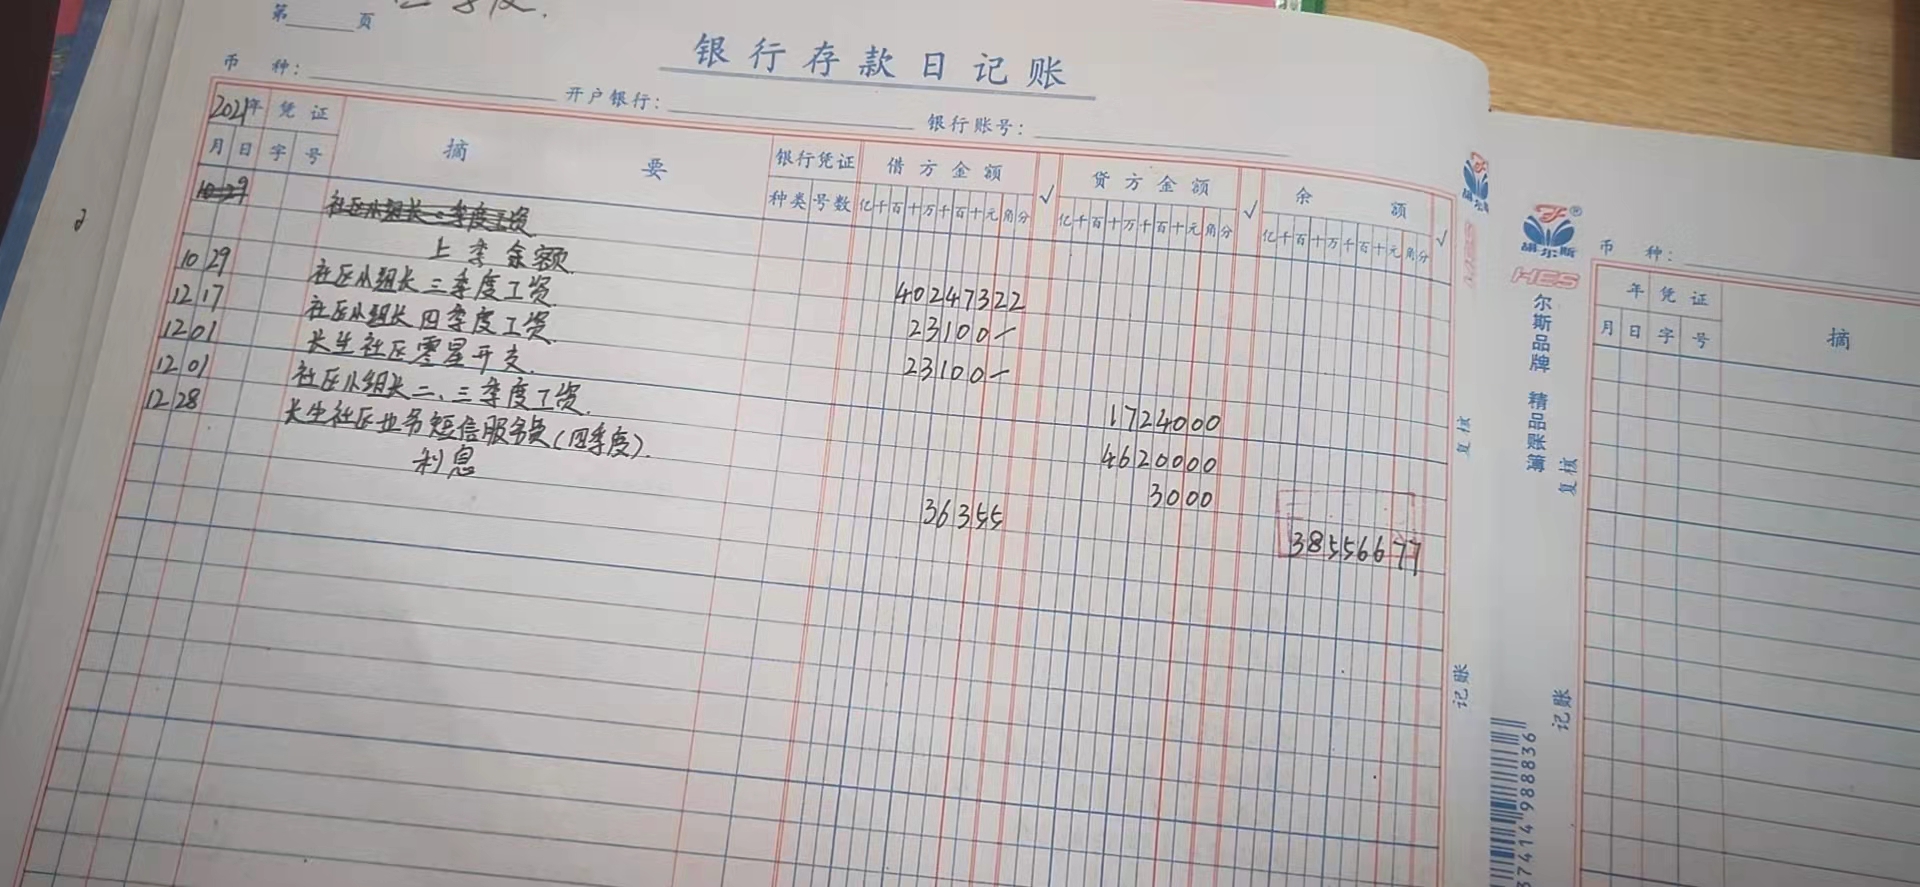 第 页
银行存款日记账
币 种:
开户银行:
银行账号:
2021年 凭证 摘 要 银行凭证 借方金额 √ 贷方金额 √ 余 额 √
月 日 字 号 种类 号数 亿千百十万千百十元角分 亿千百十万千百十元角分 亿千百十万千百十元角分
10 29 社区小组长 季度工资
上季余额 40247322
10 29 社区小组长三季度工资 23100-
12 17 社区小组长四季度工资 23100-
12 01 长生社区零星开支. 1724000
12 01 社区小组长二、三季度工资. 4620000
12 28 长生社区业务短信服务费(四季度). 3000
利息 36355 38556677
复核
记账
胡尔斯
HES
尔斯品牌 精品账簿
复核
记账
币 种:
年 凭证 摘
月 日 字 号